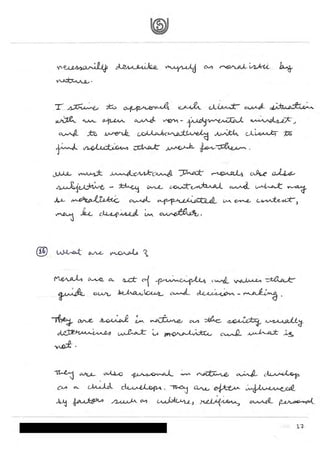 necessarily describe myself as moralistic by
nature.
I strive to approach each client and situation
with an open and non-judgmental mindset,
and to work collaboratively with clients to
find solutions that work for them.
We must understand that morals are also
subjective - they are contextual and what may
be moralistic and appreciated in one context,
may be despised in another.
What are morals?
Morals are a set of principles and values that
guide our behaviour and decision-making.
They are social in nature as the society usually
determines what is moralistic and what is
not.
They are also personal in nature and develop
as a child develops. They are often influenced
by factors such as culture, religion, and personal